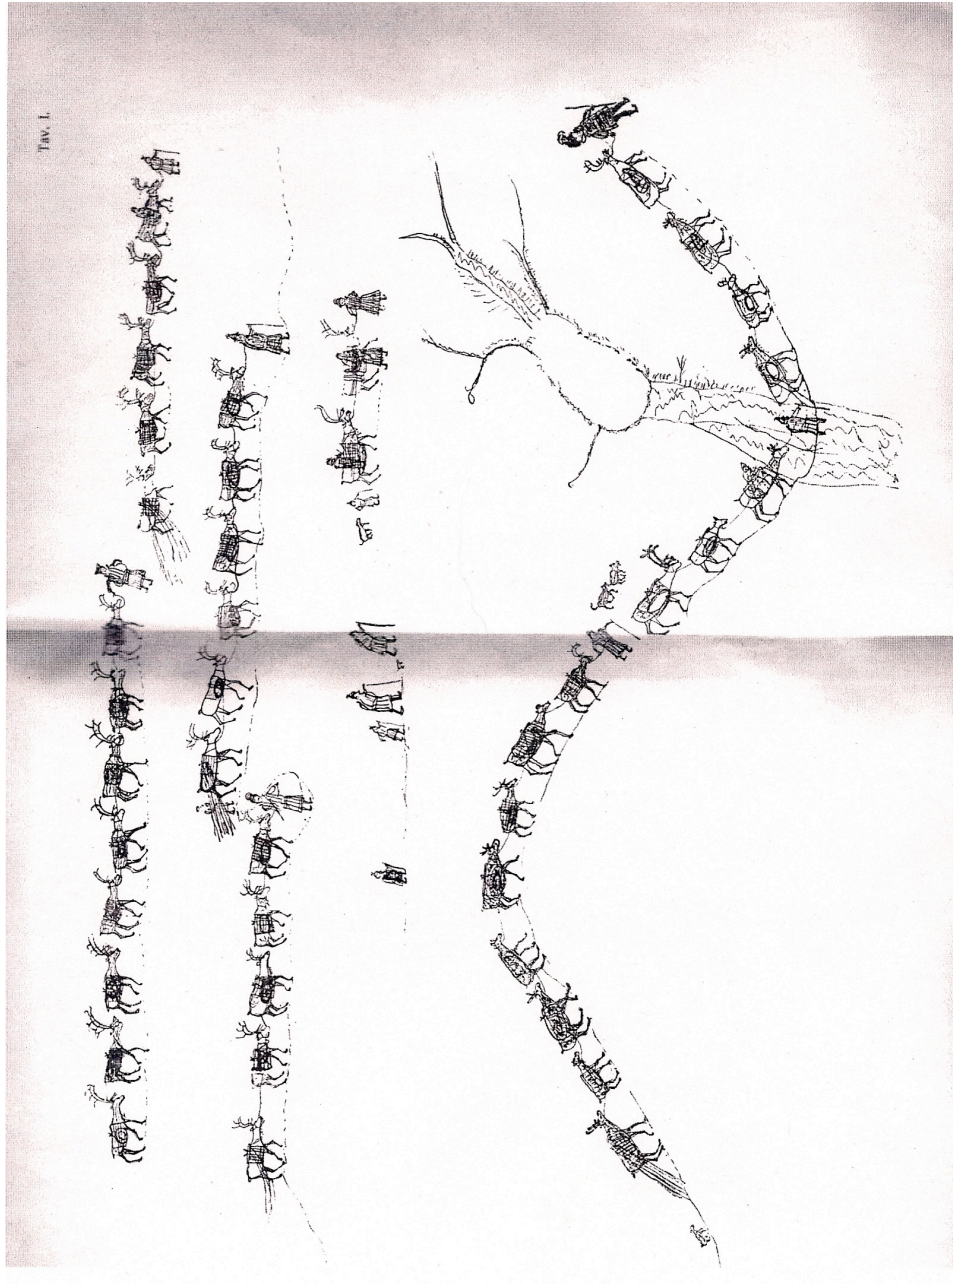 Tav. I.